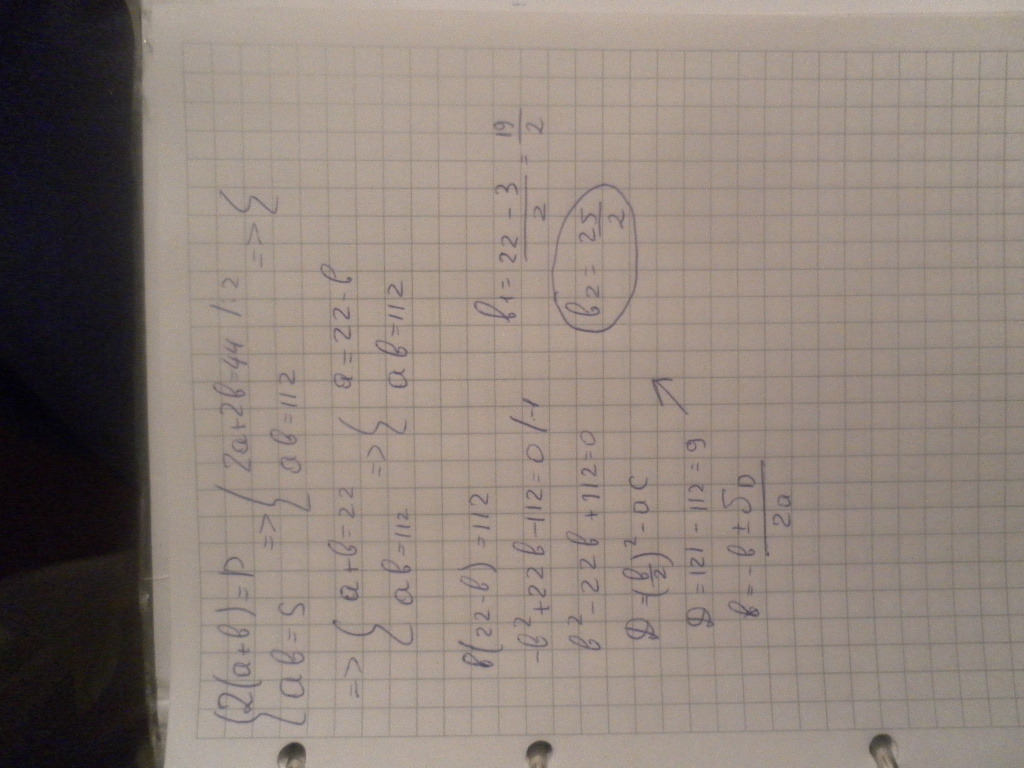 { 2(a+b)=p
{ ab=S
=> { 2a+2b=44 /:2
{ ab=112
=> {
=> { a+b=22
{ ab=112
=> { a=22-b
{ ab=112
b(22-b)=112
-b²+22b-112=0 /·-1
b²-22b+112=0
D=(b/2)²-ac
D=121-112=9
b=-b±√D/2a
b₁=22-3/2=19/2
b₂=25/2